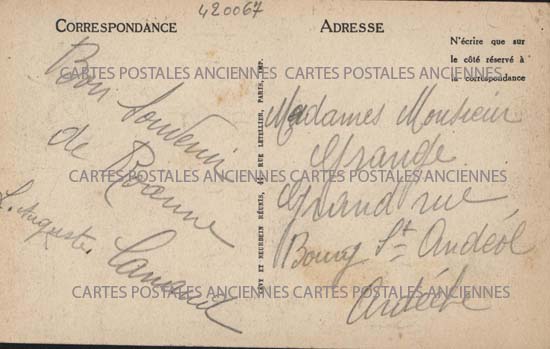 420067
CORRESPONDANCE
ADRESSE
N'écrire que sur
le côté réservé à
la correspondance
Bon Souvenir
de Roanne
L. Auguste
LEVY ET NEURDEIN RÉUNIS, 44, RUE LETELLIER, PARIS, IMP.
Madames Monsieur
Grange
Grand rue
Bourg St Andéol
Ardèche
CARTES POSTALES ANCIENNES CARTES POSTALES ANCIENNES
CARTES POSTALES ANCIENNES CARTES POSTALES ANCIENNES
CARTES POSTALES ANCIENNES CARTES POSTALES ANCIENNES